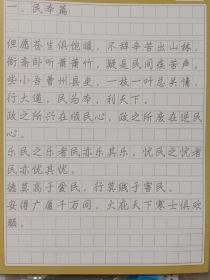 一、民本篇
但愿苍生俱饱暖，不辞辛苦出山林。
衙斋卧听萧萧竹，疑是民间疾苦声。
些小吾曹州县吏，一枝一叶总关情。
行大道，民为本，利天下。
政之所兴在顺民心，政之所废在逆民
心。
乐民之乐者民亦乐其乐，忧民之忧者
民亦忧其忧。
德莫高于爱民，行莫贱于害民。
安得广厦千万间，大庇天下寒士俱欢
颜。